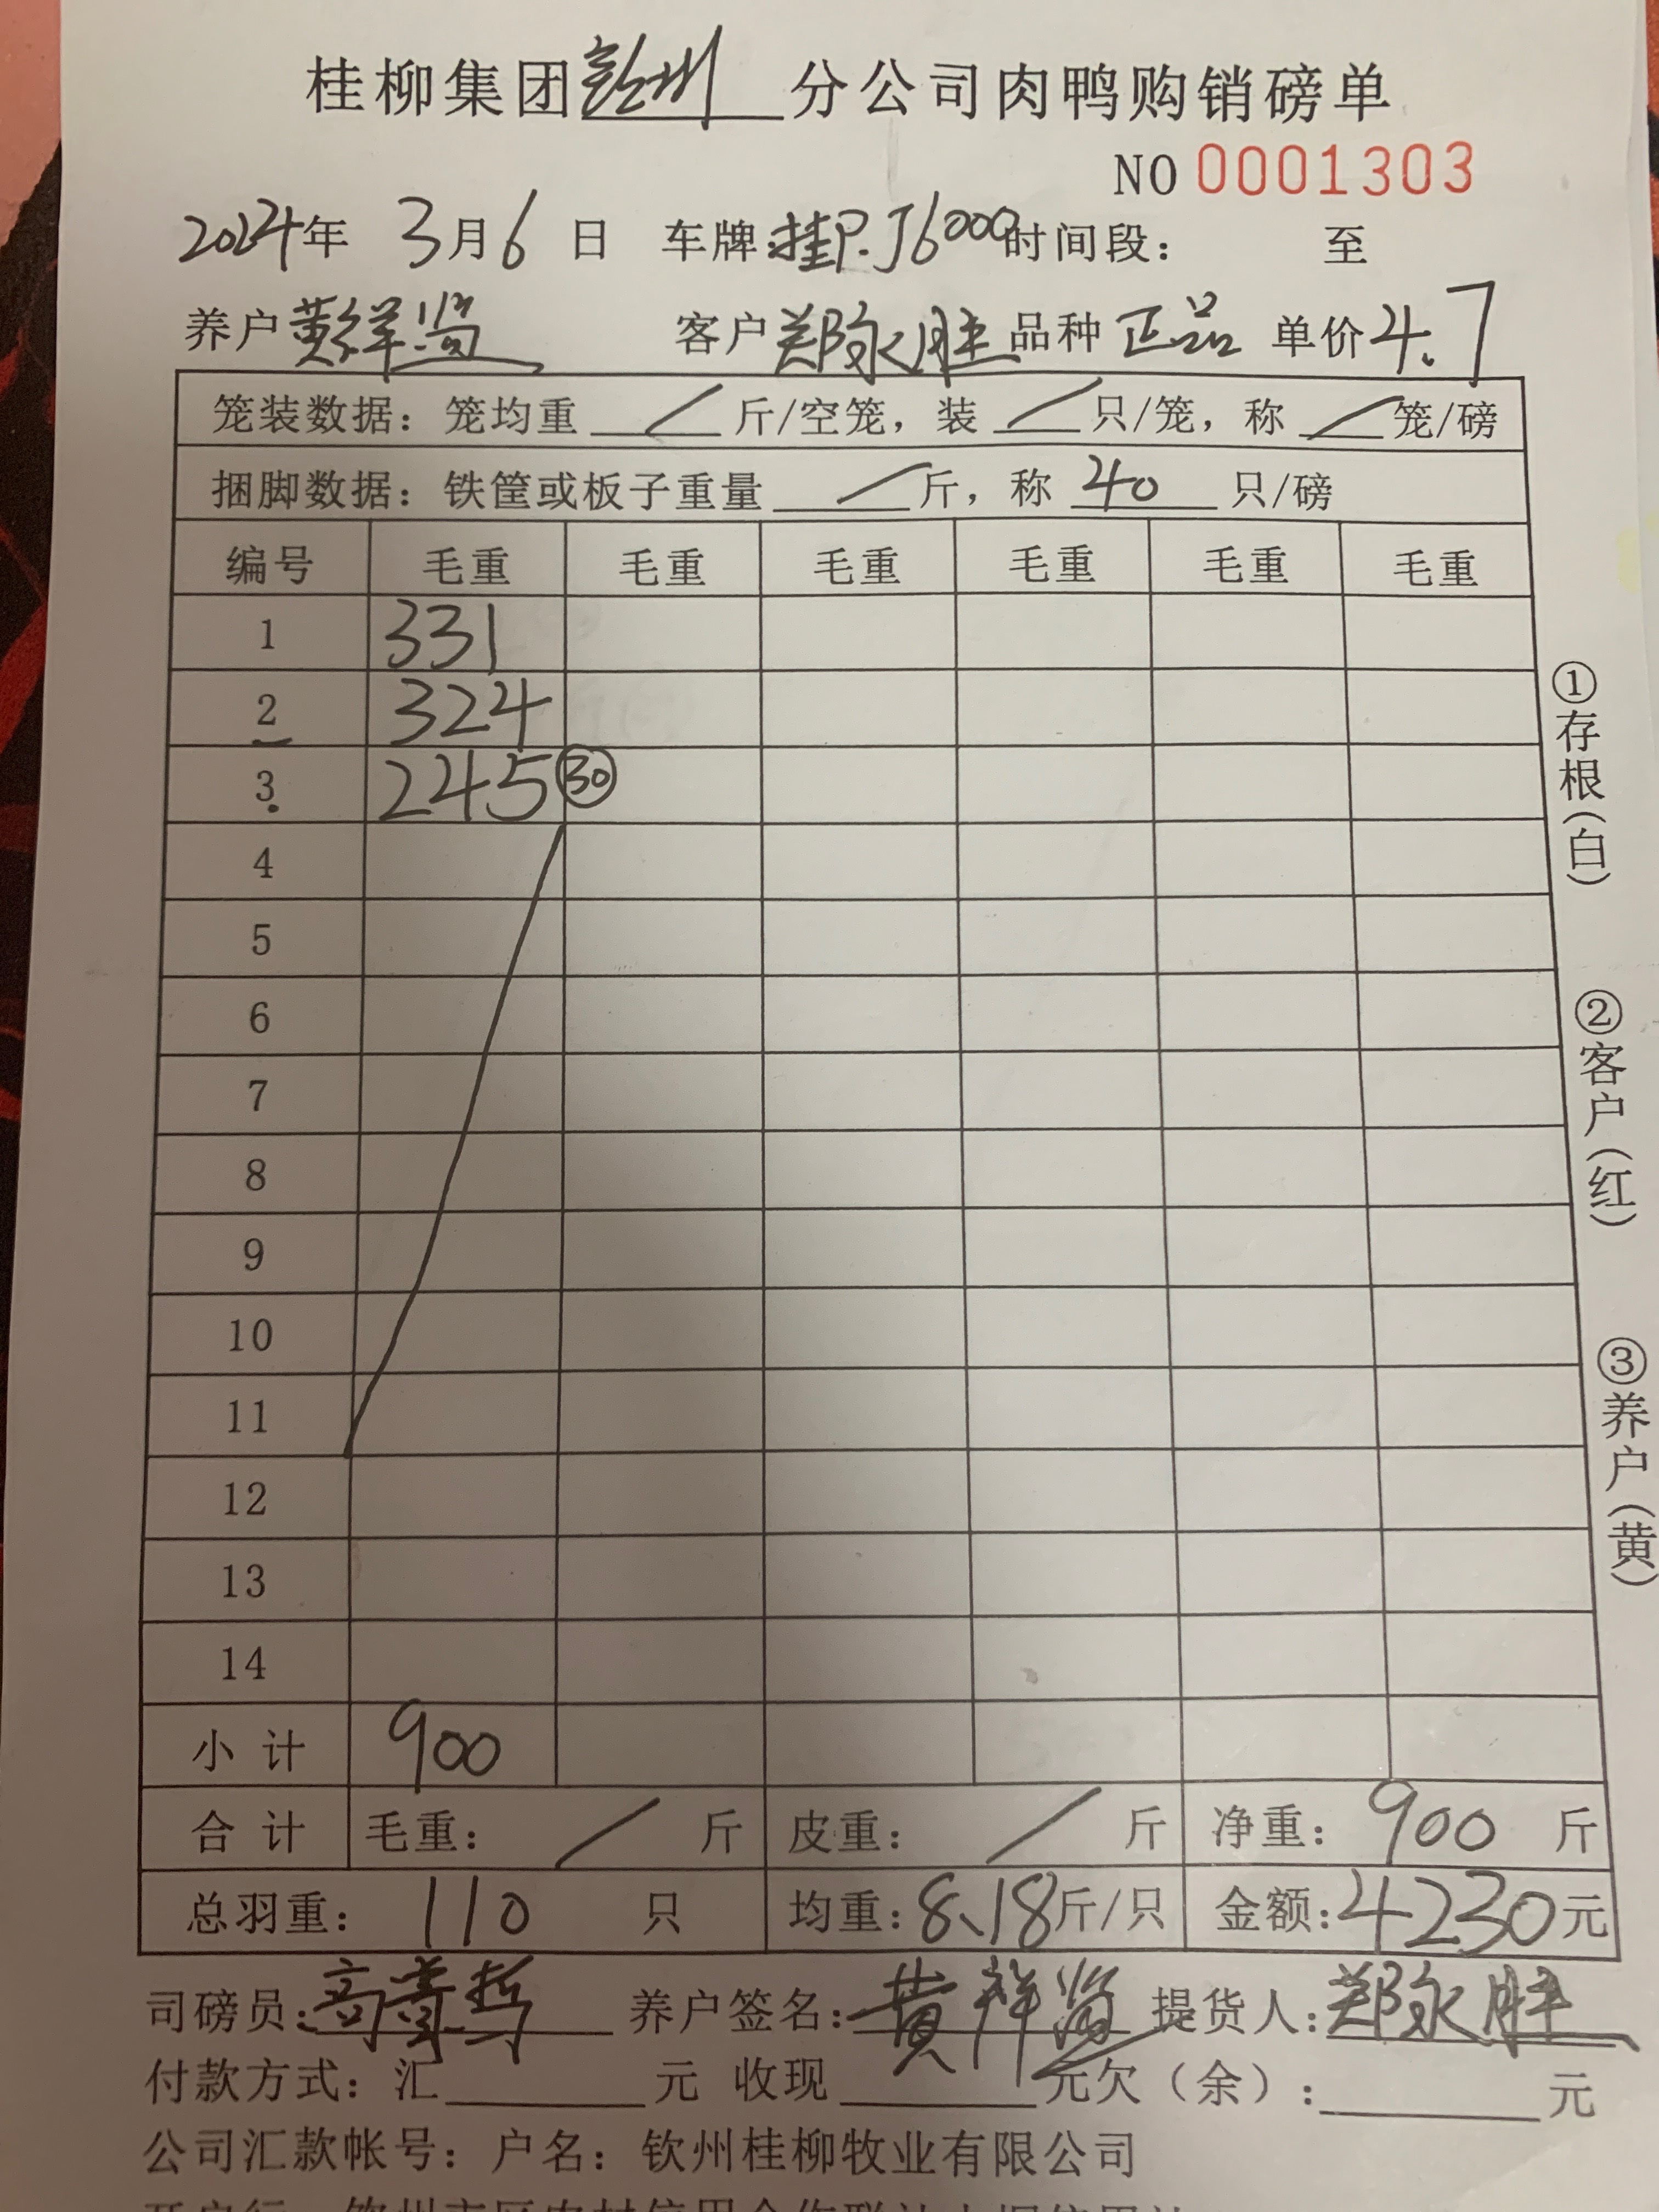 桂柳集团钦州分公司肉鸭购销磅单
NO 0001303
2024年 3月6日 车牌:桂P.J6000时间段: 至
养户黄祥 客户郑永胜品种正品单价4.7
笼装数据:笼均重 / 斤/空笼,装 / 只/笼,称 / 笼/磅
捆脚数据:铁筐或板子重量 / 斤,称 40 只/磅
编号 毛重 毛重 毛重 毛重 毛重 毛重
1 331
2 324
3 245 ㉚
4
5
6
7
8
9
10
11
12
13
14
小计 900
合计 毛重: / 斤 皮重: / 斤 净重: 900 斤
总羽重: 110 只 均重:8.18斤/只 金额:4230元
司磅员: 养户签名:黄祥 提货人:郑永胜
付款方式:汇 元 收现 元欠(余): 元
公司汇款帐号:户名:钦州桂柳牧业有限公司
①存根(白)
②客户(红)
③养户(黄)